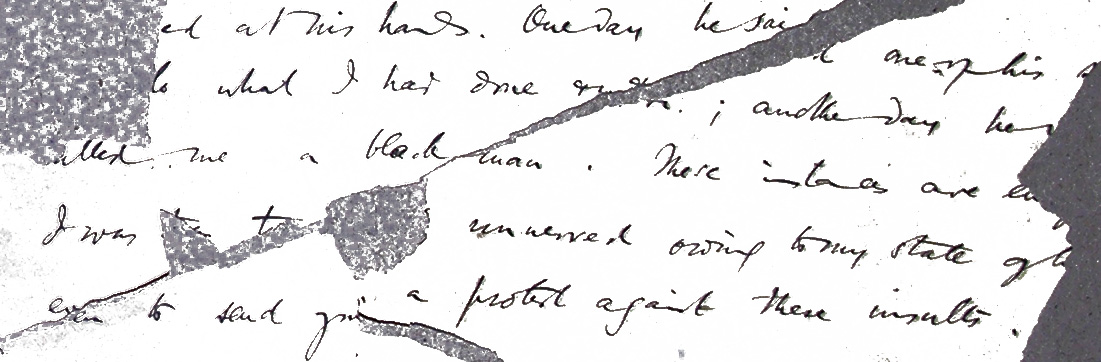 ed at his hands. One day he said one of his
to what I had done ; another day he
called me a black man . These instances are
I was unnerved owing to my state of
even to send you a protest against these insults .